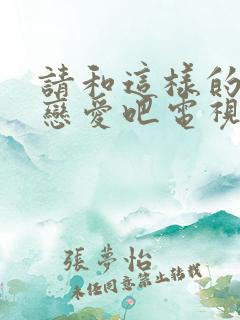 請和這樣的
戀愛吧電視
張夢怡
未經同意禁止轉載